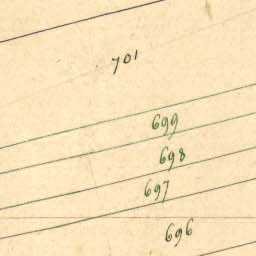 701
699
698
697
696